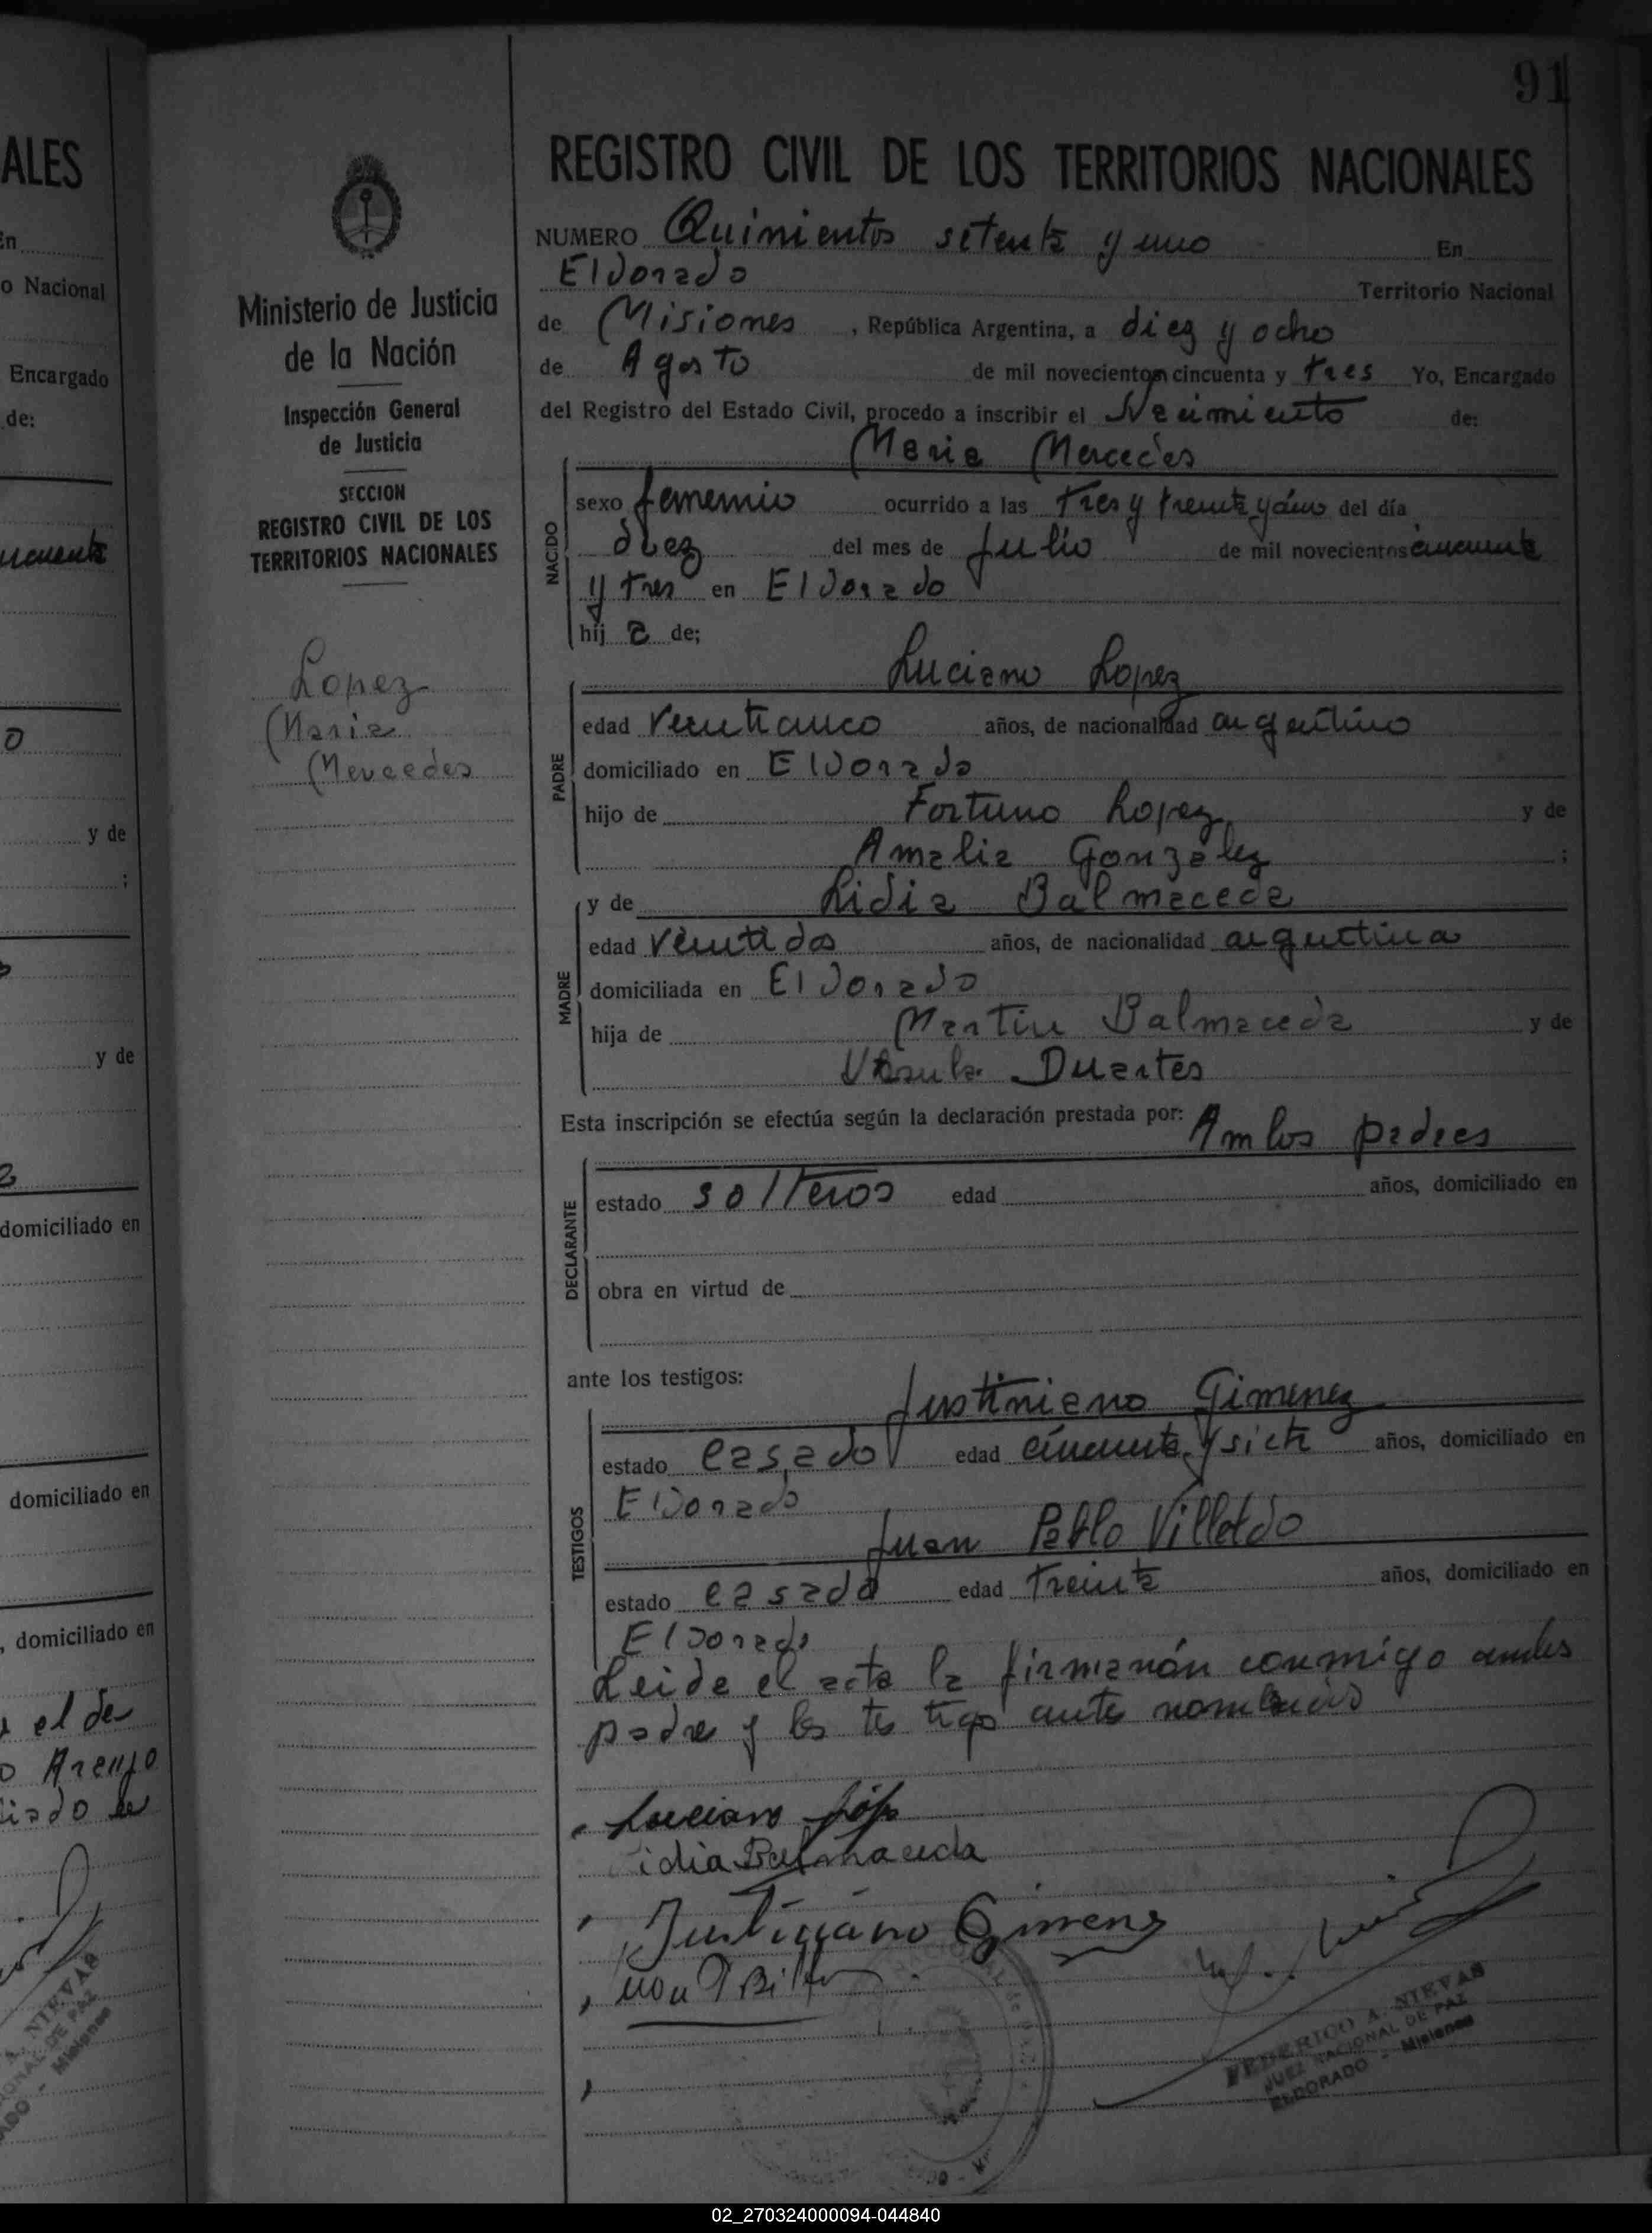 91
REGISTRO CIVIL DE LOS TERRITORIOS NACIONALES
NUMERO Quinientos setenta y uno En
Eldorado Territorio Nacional
de Misiones, República Argentina, a diez y ocho
de Agosto de mil novecientos cincuenta y tres Yo, Encargado
del Registro del Estado Civil, procedo a inscribir el Nacimiento de:
Maria Mercedes
NACIDO
sexo femenino ocurrido a las tres y treinta y cinco del día
diez del mes de Julio de mil novecientos cincuenta
y tres en Eldorado
hij a de;
Luciano Lopez
PADRE
edad veinticinco años, de nacionalidad argentino
domiciliado en Eldorado
hijo de Fortuno Lopez y de
Amalia Gonzalez ;
y de Lidia Balmaceda
MADRE
edad veintidos años, de nacionalidad argentina
domiciliada en Eldorado
hija de Martin Balmaceda y de
Ursula Duartes
Esta inscripción se efectúa según la declaración prestada por: Ambos padres
DECLARANTE
estado solteros edad años, domiciliado en
obra en virtud de
ante los testigos:
Justiniano Gimenez
TESTIGOS
estado casado edad cincuenta y siete años, domiciliado en
Eldorado
Juan Pablo Villaldo
estado casado edad treinta años, domiciliado en
Eldorado
Leida el acta la firmarón conmigo ambos
padre y los testigo ante nombrados
Luciano
idia Balmaceda
Justiniano Gimenez
FEDERICO A. NIEVAS
JUEZ NACIONAL DE PAZ
ELDORADO - Misiones
Ministerio de Justicia
de la Nación
Inspección General
de Justicia
SECCION
REGISTRO CIVIL DE LOS
TERRITORIOS NACIONALES
Lopez
Maria
Mercedes
ALES
En
o Nacional
Encargado
de:
y de
;
y de
domiciliado en
domiciliado en
, domiciliado en
el de
A. NIEVAS
DE PAZ
Misiones
02_270324000094-044840